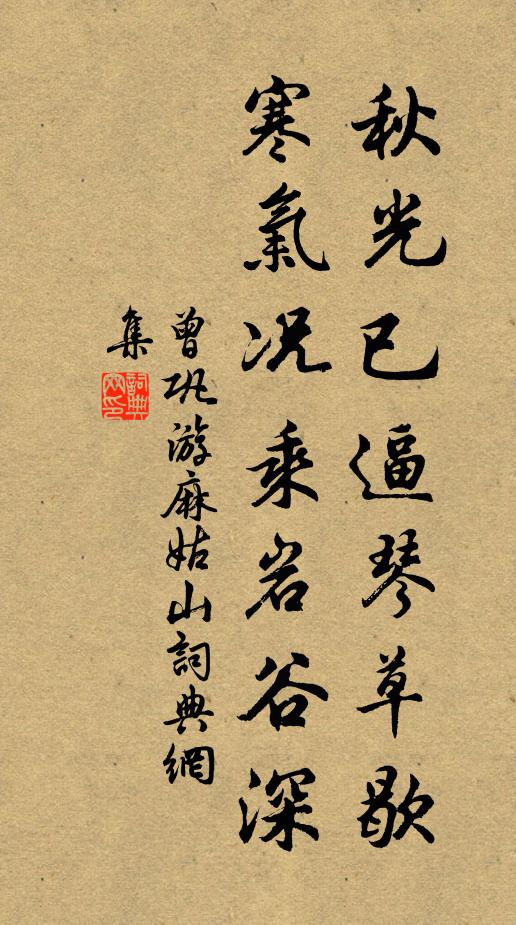 秋光已逼琴草歇
寒氣况乘岩谷深
曾巩游麻姑山詞典網
集
詞典網印